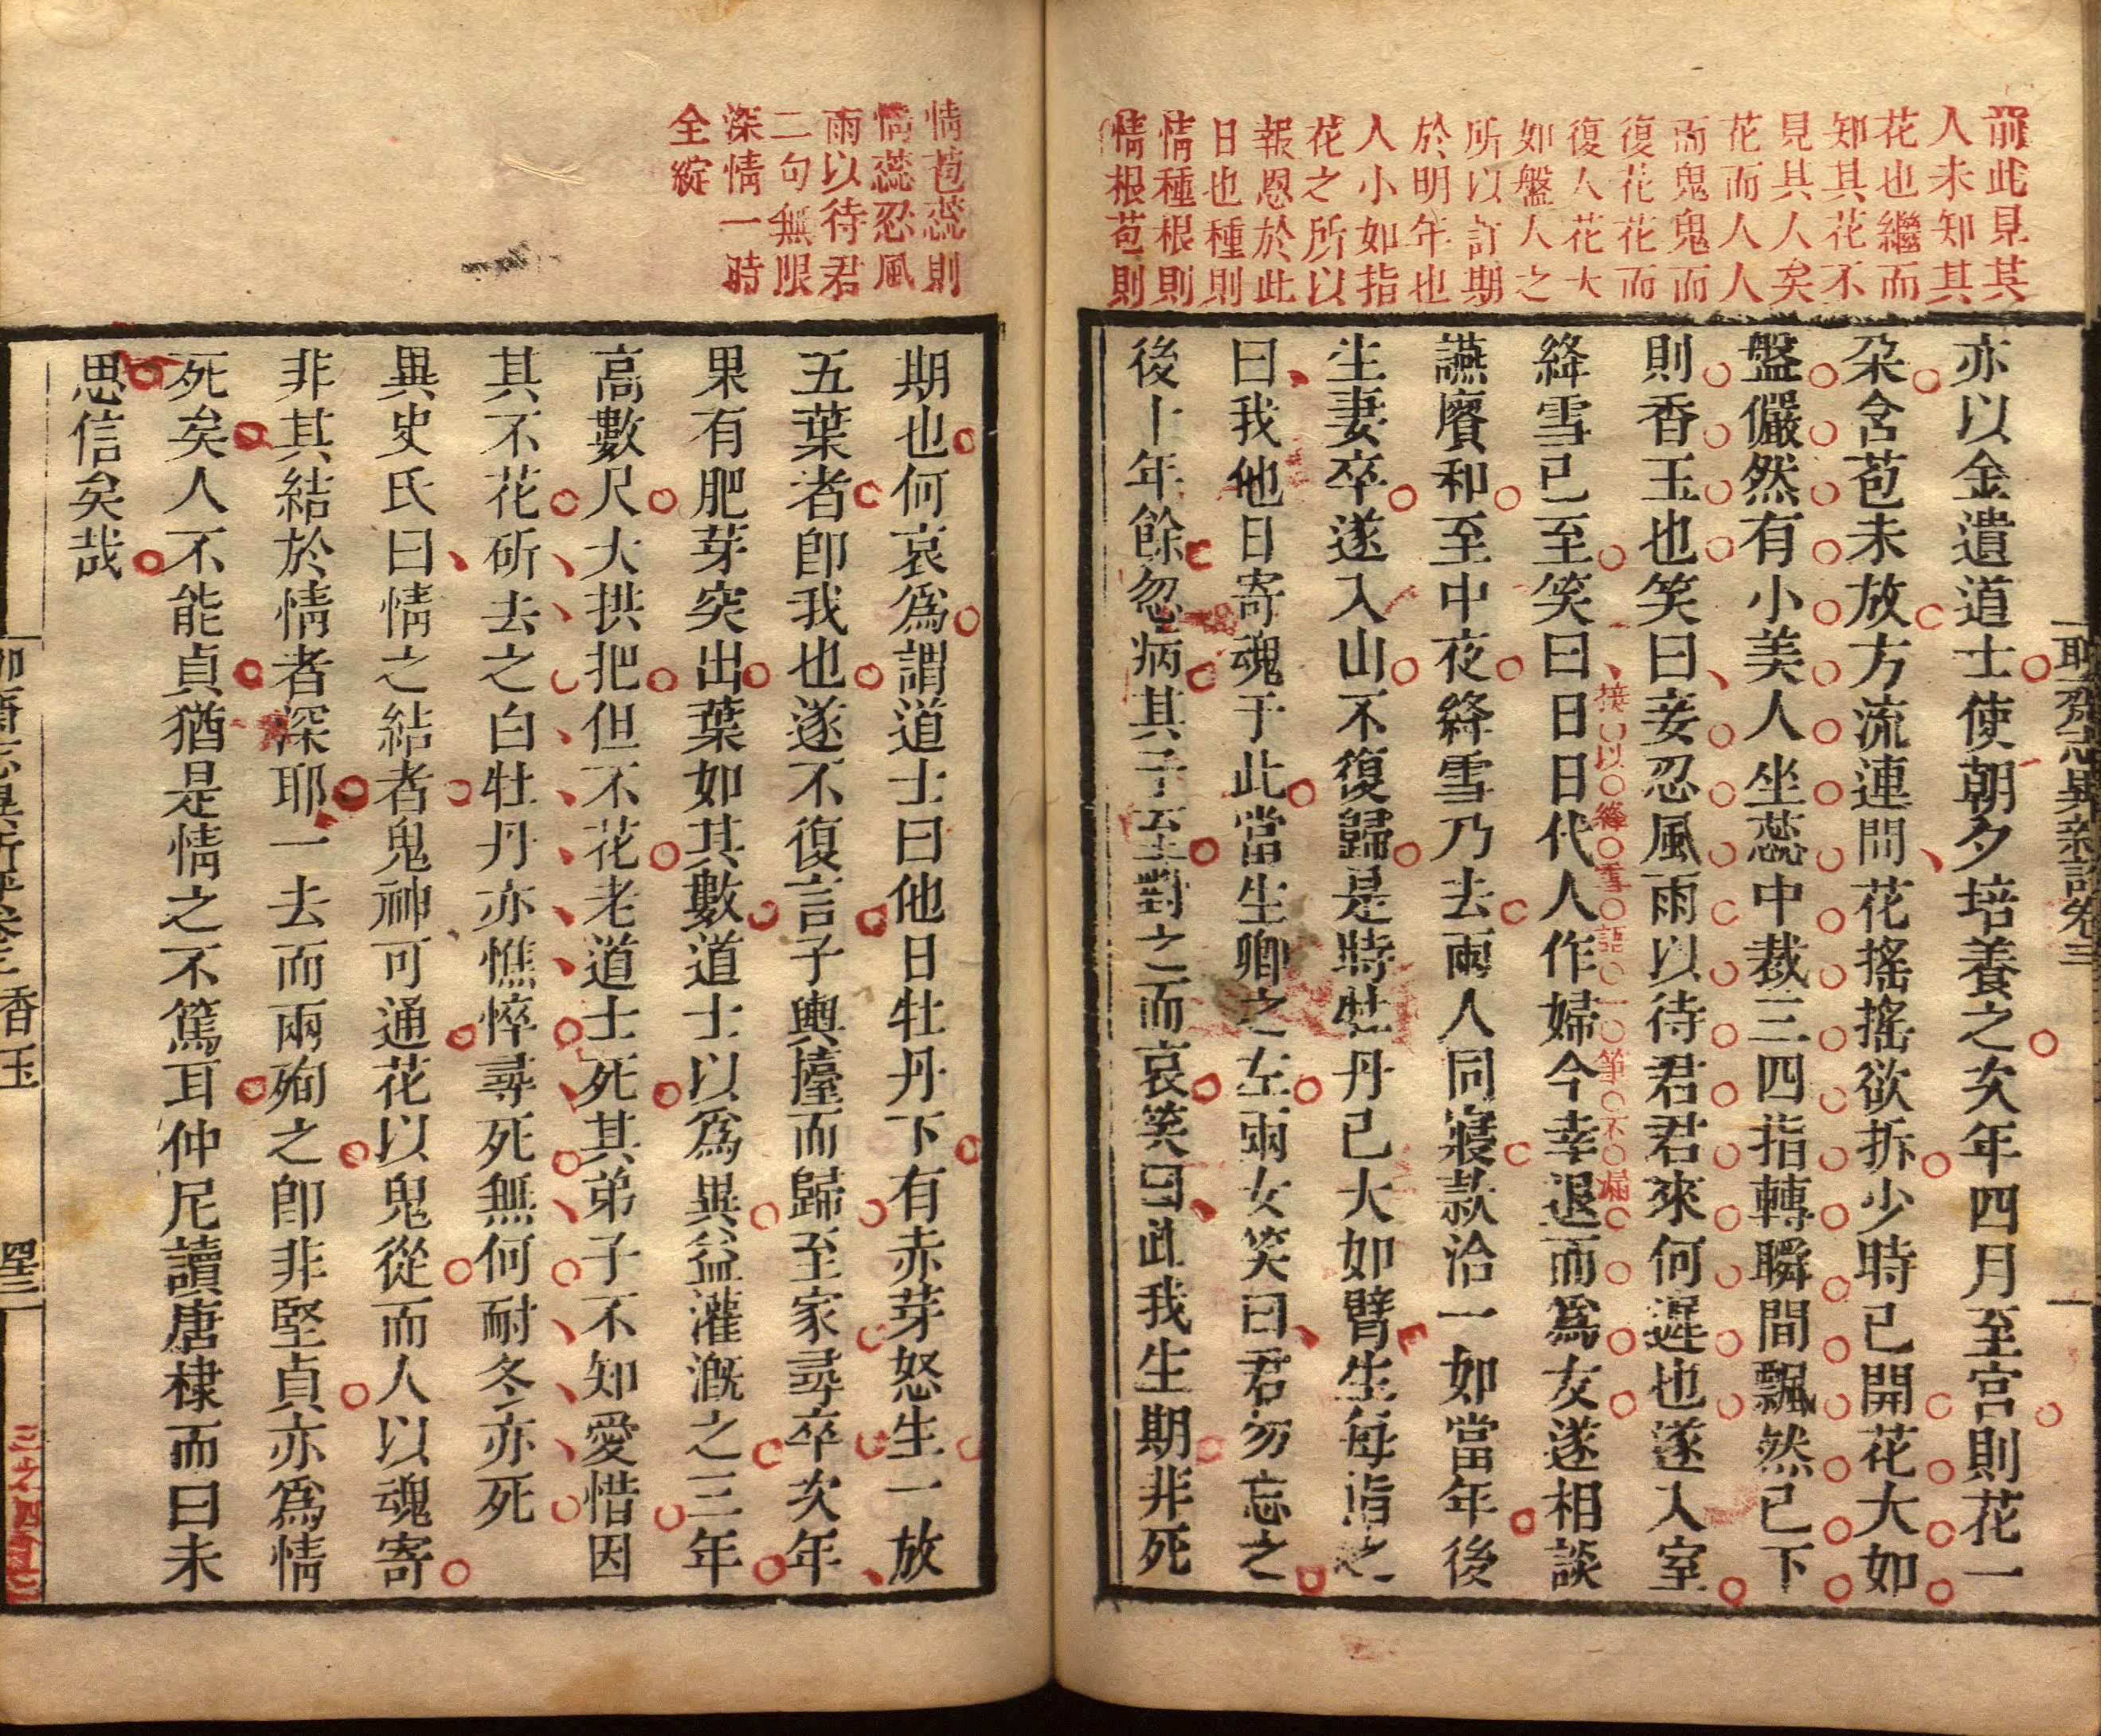 前此見其
人未知其
花也繼而
知其花不
見其人矣
花而人人
而鬼鬼而
復花花而
復人花大
如盤人之
所以訂期
於明年也
人小如指
花之所以
報恩於此
日也種則
情種根則
情根苞則
聊齋志異新評卷三
亦以金遺道士使朝夕培養之次年四月至宮則花一
朶含苞未放方流連間花搖搖欲拆少時已開花大如
盤儼然有小美人坐蕊中裁三四指轉瞬間飄然已下
則香玉也笑曰妾忍風雨以待君君來何遲也遂入室
接以絳雪語一筆不漏
絳雪已至笑曰日日代人作婦今幸退而爲友遂相談
讌賡和至中夜絳雪乃去兩人同寢款洽一如當年後
生妻卒遂入山不復歸是時牡丹已大如臂生每指之
曰我他日寄魂于此當生卿之左兩女笑曰君勿忘之
後十年餘忽病其子至對之而哀笑曰此我生期非死
情苞蕊則
情蕊忍風
雨以待君
二句無限
深情一時
全綻
期也何哀爲謂道士曰他日牡丹下有赤芽怒生一放
五葉者卽我也遂不復言子輿擡而歸至家尋卒次年
果有肥芽突出葉如其數道士以爲異益灌漑之三年
高數尺大拱把但不花老道士死其弟子不知愛惜因
其不花斫去之白牡丹亦憔悴尋死無何耐冬亦死
異史氏曰情之結者鬼神可通花以鬼從而人以魂寄
非其結於情者深耶一去而兩殉之卽非堅貞亦爲情
死矣人不能貞猶是情之不篤耳仲尼讀唐棣而曰未
思信矣哉
聊齋志異新評卷三 香玉